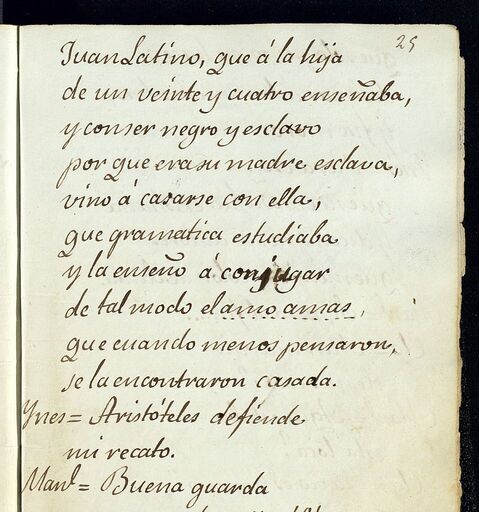 25
Juan Latino, que á la hija
de un veinte y cuatro enseñaba,
y con ser negro y esclavo
por que era su madre esclava,
vino á casarse con ella,
que gramatica estudiaba
y la enseño á conjugar
de tal modo el amo amas,
que cuando menos pensaron,
se la encontraron casada.
Ynes = Aristóteles defiende
mi recato.
Manl = Buena guarda